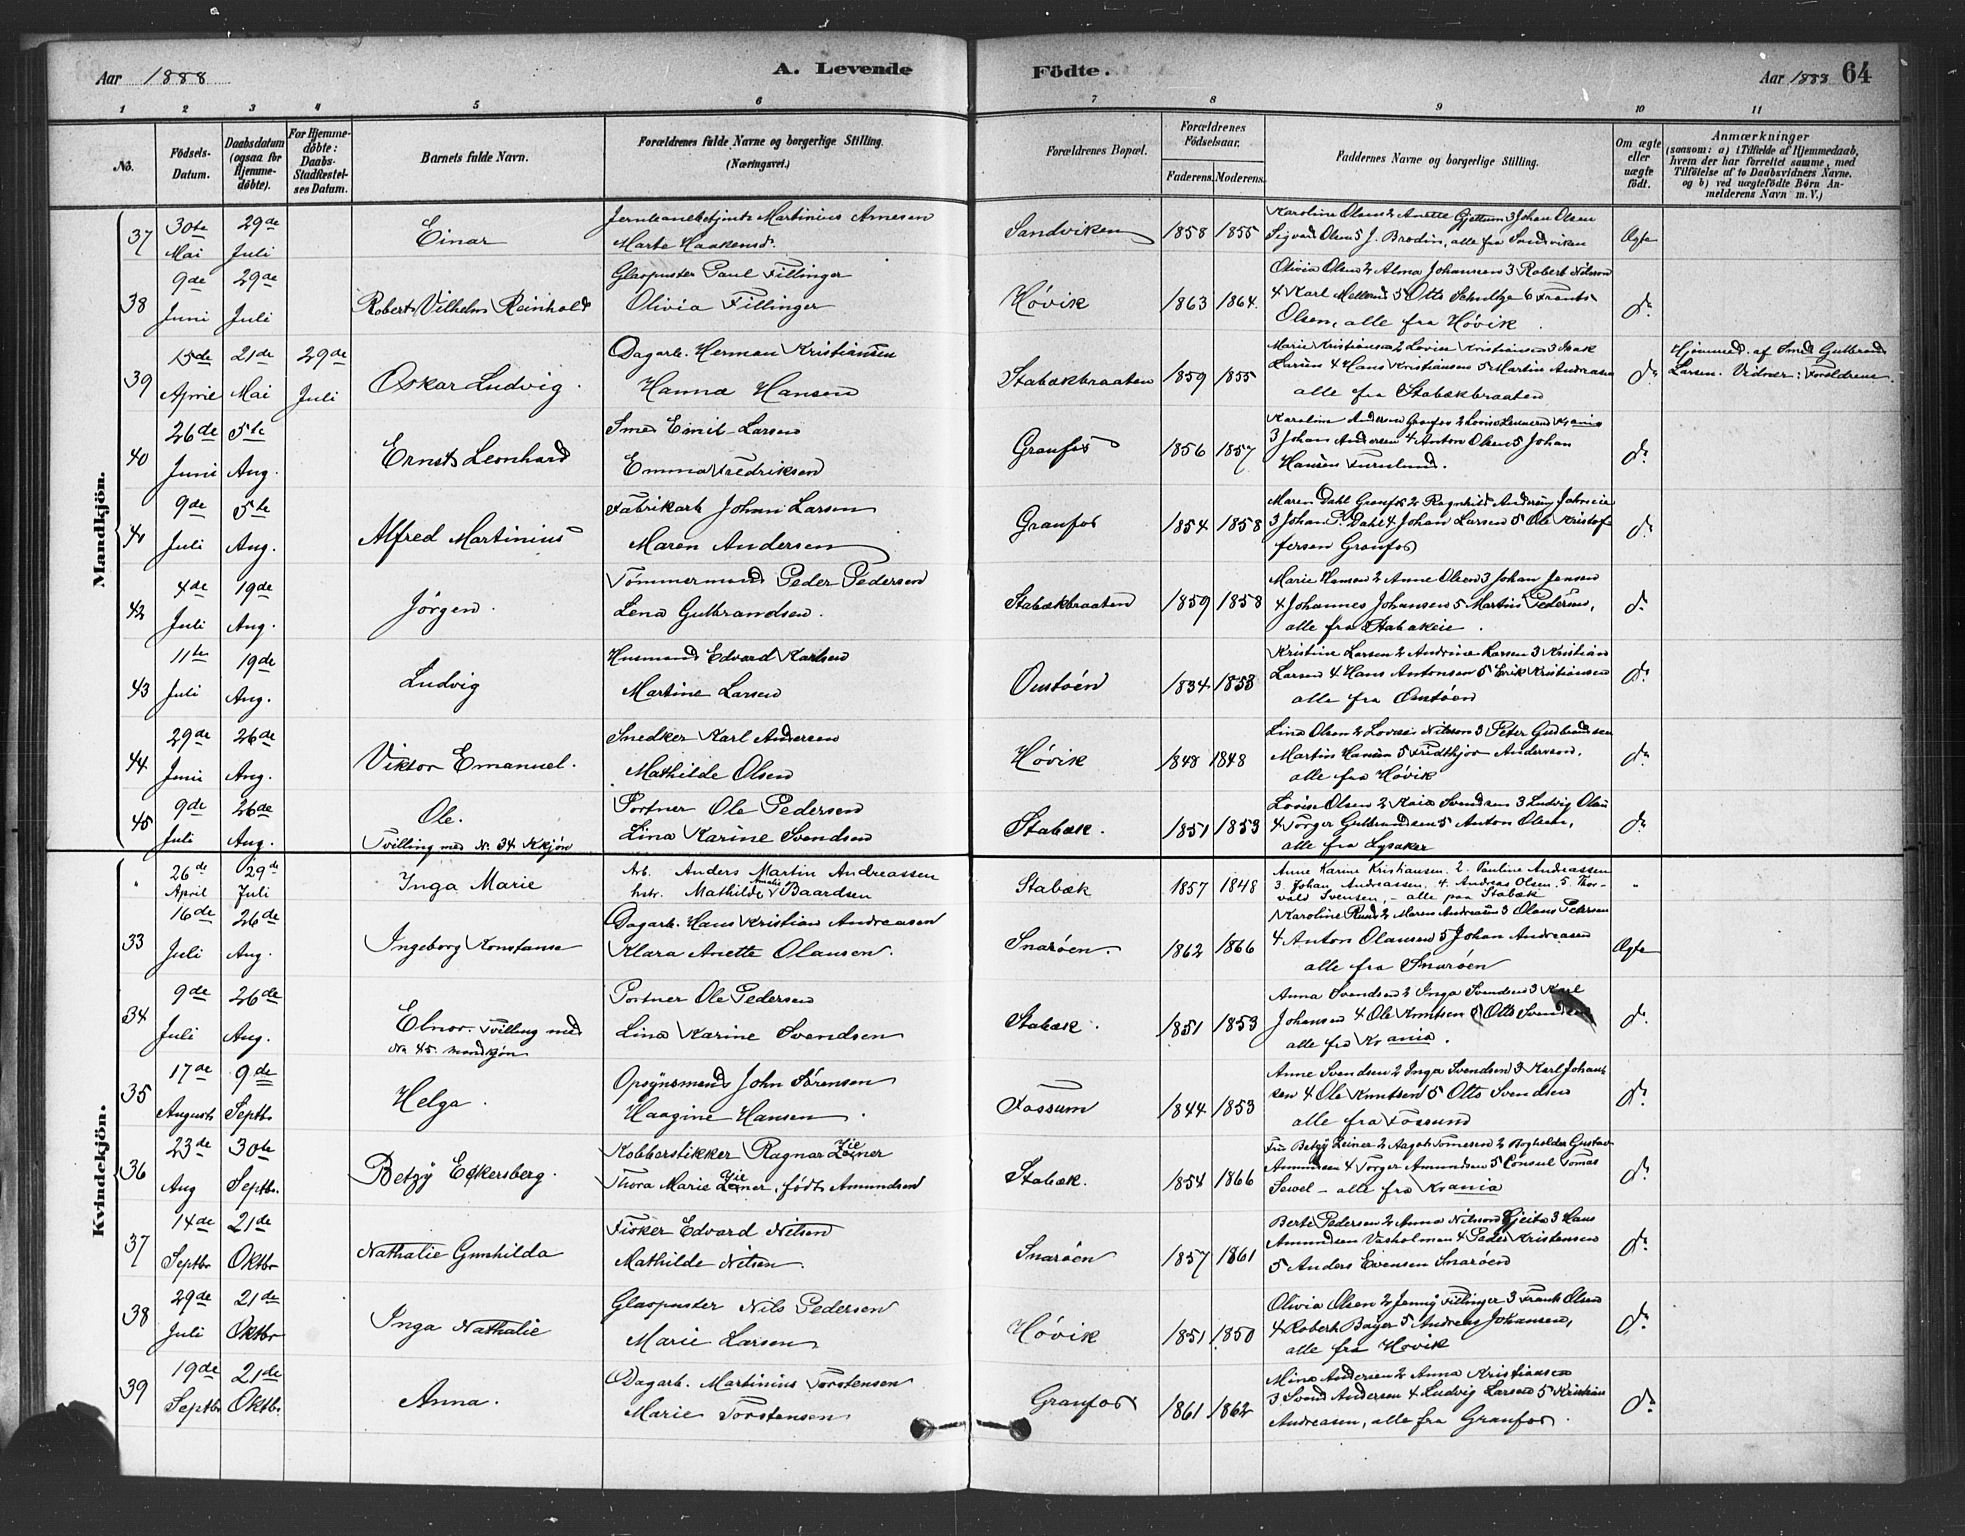 Aar 1888
A. Levende
Födte.
Aar 1888 64
1 2 3 4 5 6 7 8 9 10 11
No.
Födsels-Datum.
Daabsdatum (ogsaa for Hjemmedöbte).
For Hjemmedöbte: Daabs-Stadfæstelses Datum.
Barnets fulde Navn.
Forældrenes fulde Navne og borgerlige Stilling. (Næringsvei.)
Forældrenes Bopæl.
Forældrenes Födselsaar.
Faderens. Moderens.
Faddernes Navne og borgerlige Stilling.
Om ægte eller uægte födt.
Anmærkninger
(saasom: a) i Tilfælde af Hjemmedaab, hvem der har forrettet samme, med Tilföielse af to Daabsvidners Navne. og b) ved uægtefödte Börn Anmelderens Navn m. V.)
Mandkjön.
37 30te Mai 29de Juli Einar
Martinius Arnesen
Marte Haakensd.
Sandviken 1858 1855
Karoline Olsen 2 Anette Gjettum 3 Johan Olsen
Sigvard Olsen 5 J. Brodin, alle fra Sandviken
Ægte
38 9de Juni 29de Juli Robert Vilhelm Reinhold
Glaspuster Paul Fillinger
Olivia Fillinger
Høvik 1863 1864
Olivia Olsen 2 Alma Johansen 3 Robert Nilsson
4 Karl Mellend 5 Otto Schultze 6 Frants
Olsen, alle fra Høvik
do
39 15de April 21de Mai 29de Juli Oskar Ludvig.
Dagarb. Herman Kristiansen
Hanna Hansen
Stabækbraaten 1859 1855
Marie Kristiansen 2 Lovise Kristiansen 3 Isak
Larsen 4 Hans Kristiansen 5 Martin Andreasen
alle fra Stabækbraaten
do
Hjemmed. af Smed Gulbrand
Larsen. Vidner: Forældrene.
40 26de Juni 5te Aug. Ernst Leonhard
Smed Emil Larsen
Emma Fredriksen
Granfos 1856 1857
Karoline Andersen Granfos 2 Lovise Kra͞nia
3 Johan Andersen 4 Anton Olsen 5 Johan
Hansen Furulund.
do
41 9de Juli 5te Aug. Alfred Martinius
Fabrikarb Johan Larsen
Maren Andersen
Granfos 1854 1858
Maren Dahl Granfos 2 Ragnhild Andersen
3 Johan P. Dahl 4 Johan Larsen 5 Ole Kristof
fersen Granfos
do
42 4de Juli 19de Aug. Jörgen.
Tömmermand Peder Pedersen
Lena Gulbrandsen.
Stabækbraaten 1859 1858
Marie Hansen 2 Anne Olsen 3 Johan Jensen
4 Johannes Johansen 5 Martin Pedersen,
alle fra Stabækeie.
do
43 11te Juli 19de Aug. Ludvig
Husmand Edvard Karlsen
Martine Larsen
Oustöen 1834 1853
Kristine Larsen 2 Andrine Larsen 3 Kristian
Larsen 4 Hans Antonsen 5 Erik Kristiansen
alle fra Oustöen
do
44 29de Juni 26de Aug. Viktor Emanuel.
Snedker Karl Andersen
Mathilde Olsen
Høvik 1848 1848
Lina Olsen 2 Lovise Nilsson 3 Peter Gudbrandsen
Martin Hansen 5 Fridthjov Andersson,
alle fra Høvik
do
45 9de Juli 26de Aug. Ole.
Tvilling med No. 34 Kkjön
Portner Ole Pedersen
Lina Karine Svendsen
Stabæk. 1851 1853
Lovise Olsen 2 Kaia Svendsen 3 Ludvig Olsen
4 Torger Gulbrandsen 5 Anton Olsen,
alle fra Lysaker
do
Kvindekjön.
" 26de April 29de Juli Inga Marie
Arb. Anders Martin Andreassen
hstr. Mathilde Amalie Baardsen
Stabæk 1857 1848
Anne Karine Kristiansen. 2. Pauline Andreassen
3. Johan Andreassen. 4. Andreas Olsen. 5. Thor-
vald Svensen, - alle paa Stabæk
"
33 16de Juli 26de Aug. Ingeborg Konstanse
Dagarb. Hans Kristian Andreasen
Klara Anette Olausen.
Snaröen. 1862 1866
Karoline Rund 2 Maren Andreasen 3 Olaus Petersen
4 Anton Olausen 5 Johan Andreasen
alle fra Snaröen
Ægte
34 9de Juli 26de Aug. Elnor. Tvilling med
No 45. mandkjön
Portner Ole Pedersen
Lina Karine Svendsen
Stabæk. 1851 1853
Anna Svendsen 2 Inga Svendsen 3 Karl
Johansen 4 Ole Knutsen 5 Otto Svendsen
alle fra Krania.
do
35 17de August 9de Septbr. Helga.
Opsynsmand John Sörensen
Haagine Hansen.
Fossum 1844 1853
Anne Svendsen 2 Inga Svendsen 3 Karl Johan
sen 4 Ole Knutsen 5 Otto Svendsen
alle fra Fossum
do
36 23de Aug 30te Septbr. Betzy Eckersberg.
Kobberstikker Ragnar
Thora Marie, födt Amundsen
Stabæk. 1854 1866
Fru Betzy 2 Aagot Tomesen 2 Bogholder Gustav
Amundsen 4 Torger Amundsen 5 Consul Tomas
Sewel - alle fra Krania
do
37 14de Septbr 21de Oktbr Nathalie Gunhilda
Fisker Edvard Nilsen
Mathilde Nilsen.
Snaröen 1857 1861
Berte Pedersen 2 Anna Nilsson Gjeita 3 Hans
Amundsen Vasholmen 4 Peder Kristensen
5 Anders Evensen Snaröen
do
38 29de Juli 21de Oktbr Inga Nathalie
Glaspuster Nils Pedersen
Marie Larsen
Høvik 1851 1850
Olivia Olsen 2 Jenny Fillinger 3 Frank Olsen
4 Robert Bayer 5 Andreas Johansen,
alle fra Høvik
do
39 19de Septbr 21de Oktbr. Anna.
Dagarb. Martinius Torstensen
Marie Torstensen
Granfos 1861 1862
Mina Andersen 2 Anna Kristiansen
3 Svend Andersen 4 Ludvig Larsen 5 Kristian
Andreasen, alle fra Granfos.
do